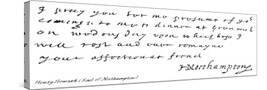 I pray you let me presume of yor
coming to me to dinner at Grenwich
on wednesday upon which hope I
will rest and ever remayne
your affectionat frend
HNorthampton
Henry Howard (Earl of Northampton)